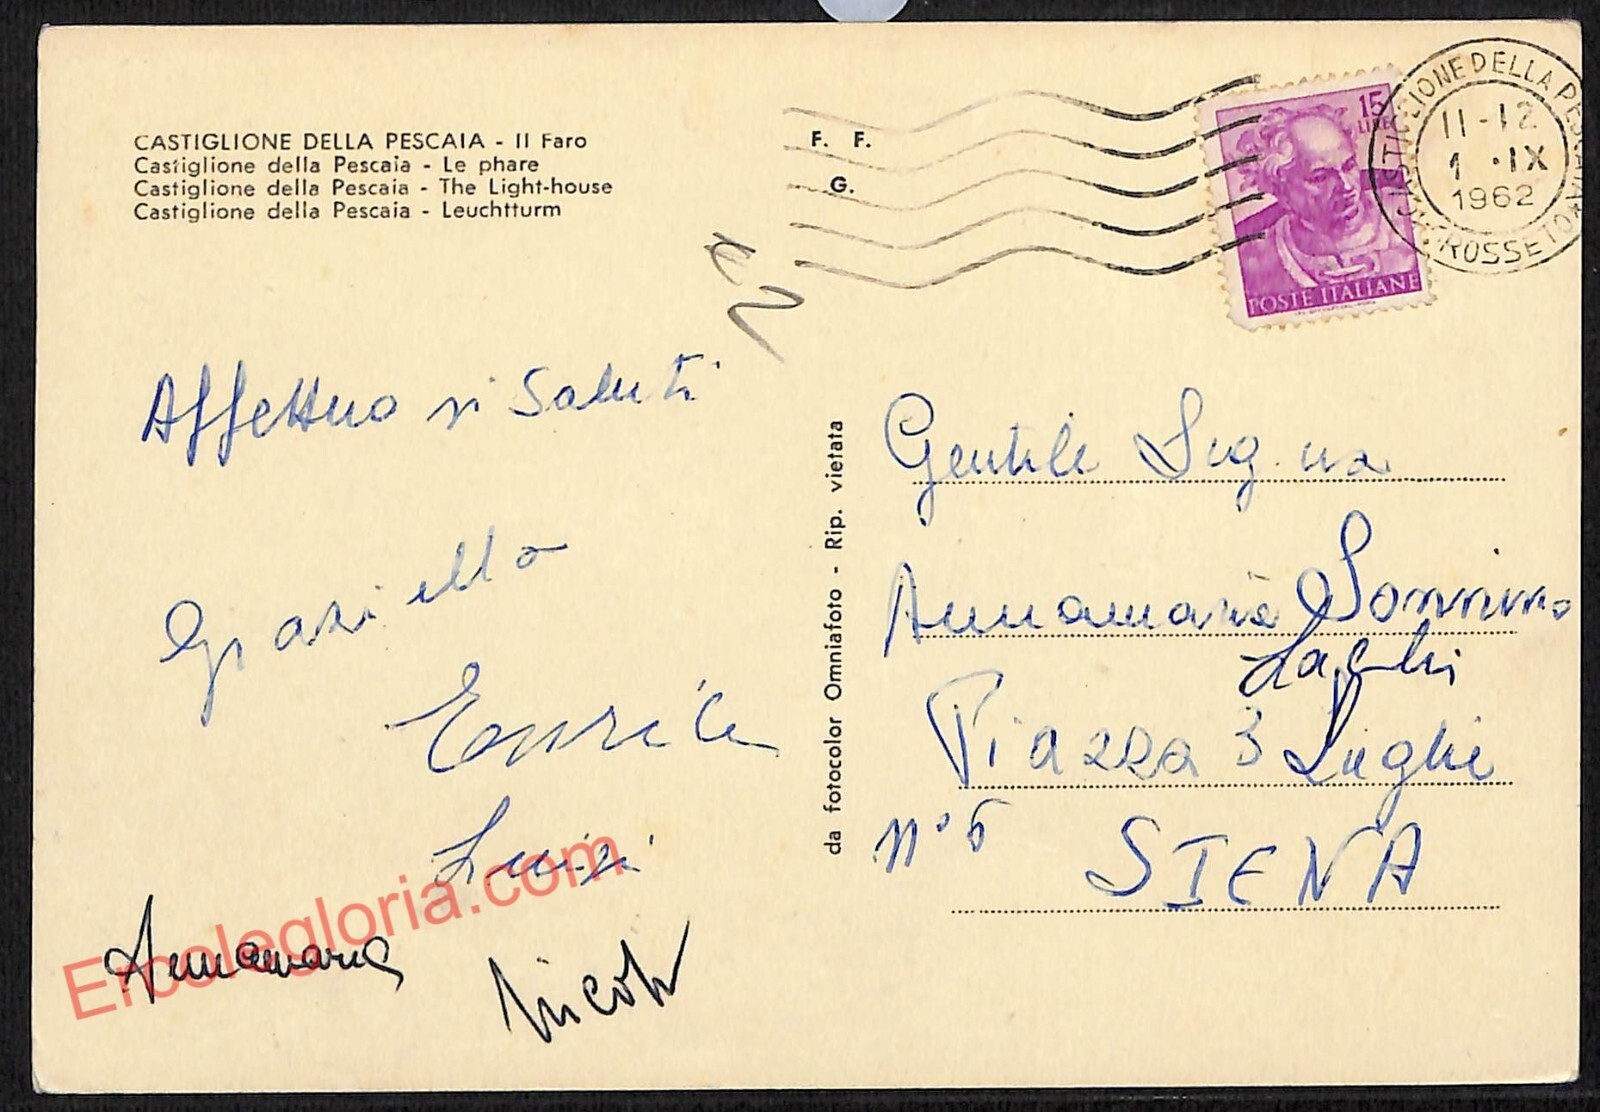 CASTIGLIONE DELLA PESCAIA - Il Faro
Castiglione della Pescaia - Le phare
Castiglione della Pescaia - The Light-house
Castiglione della Pescaia - Leuchtturm
F. F.
G.
15
LIRE
POSTE ITALIANE
CASTIGLIONE DELLA PESCAIA
GROSSETO
11-12
1 ·IX
1962
Affettuosi Saluti
Graziella
Enrica
Luigi
Annamaria
da fotocolor Omniafoto - Rip. vietata
Gentile Sig.na
Annamaria
Piazza
n° 6 SIENA
Ercolegloria.com